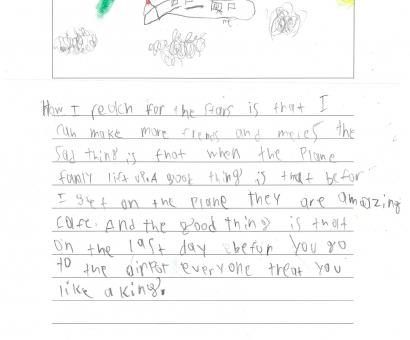 me
How I reach for the stars is that I
can make more frends and meles the
sad thing is that when the Plane
family lift up. A good thing is that befor
I get on the plane they are amazing
cafe. And the good thing is that
on the last day befor you go
to the airport everyone treat you
like a king.